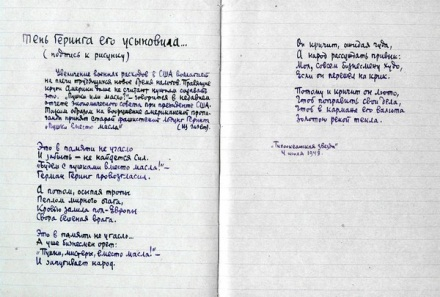 Тень Геринга его усыновила...
(подпись к рисунку)
Увеличение военных расходов в США возлагает
на плечи трудящихся новое бремя налогов. Правящие
круги Америки даже не считают нужным скрывать
это. "Пушки или масло!" - говорится в недавнем
отчете экономического совета при президенте США.
Таким образом на вооружение американской пропа-
ганды принят старый фашистский лозунг Геринга
"Пушки вместо масла" (Из газет).
Это в памяти не угасло
И забыть - не найдется сил.
"Будем с пушками вместо масла!" -
Герман Геринг провозгласил.
А потом, осыпая тропы
Пеплом мирного очага,
Кровью залила пол-Европы
Свора бешеная врага.
Это в памяти не угасло -
А уже бизнесмен орет:
"Пушки, мистеры, вместо масла!" -
И запугивает народ.
Он кричит, ожидая чуда,
А народ рассуждать привык:
Мол, совсем бизнесмену худо,
Если он перешел на крик.
Потому и кричит он люто,
Чтоб поправить свои дела,
Чтоб в карман его валюта
Золотою рекой текла.
"Тихоокеанская звезда"
4 июля 1948.